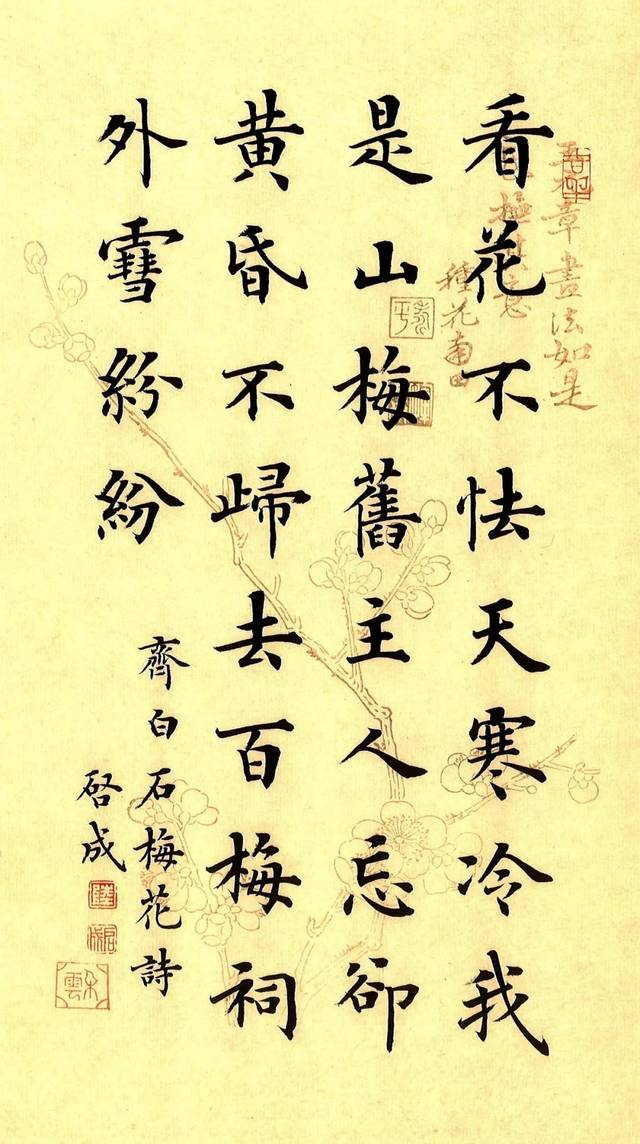 看花不怯天寒冷我
是山梅舊主人忘卻
黃昏不歸去百梅祠
外雪紛紛
齊白石梅花詩
啓成
畫法如是
種花